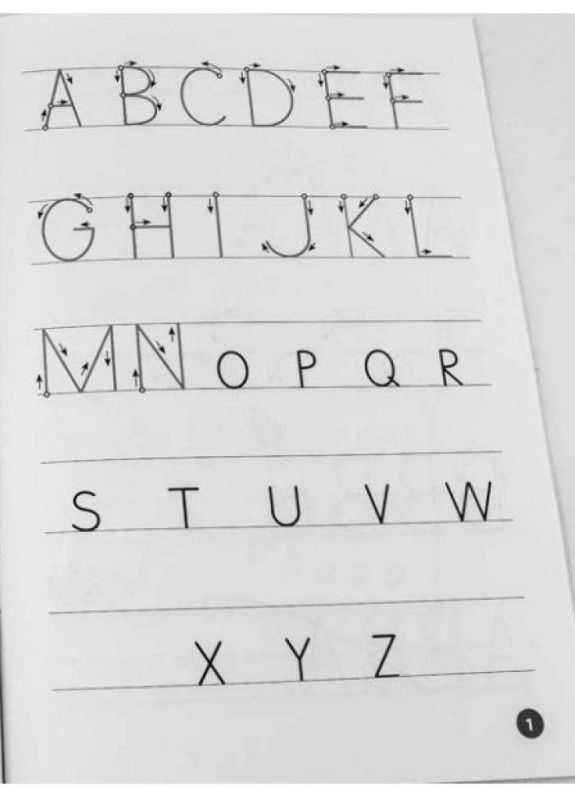 A B C D E F
G H I J K L
M N O P Q R
S T U V W
X Y Z
1